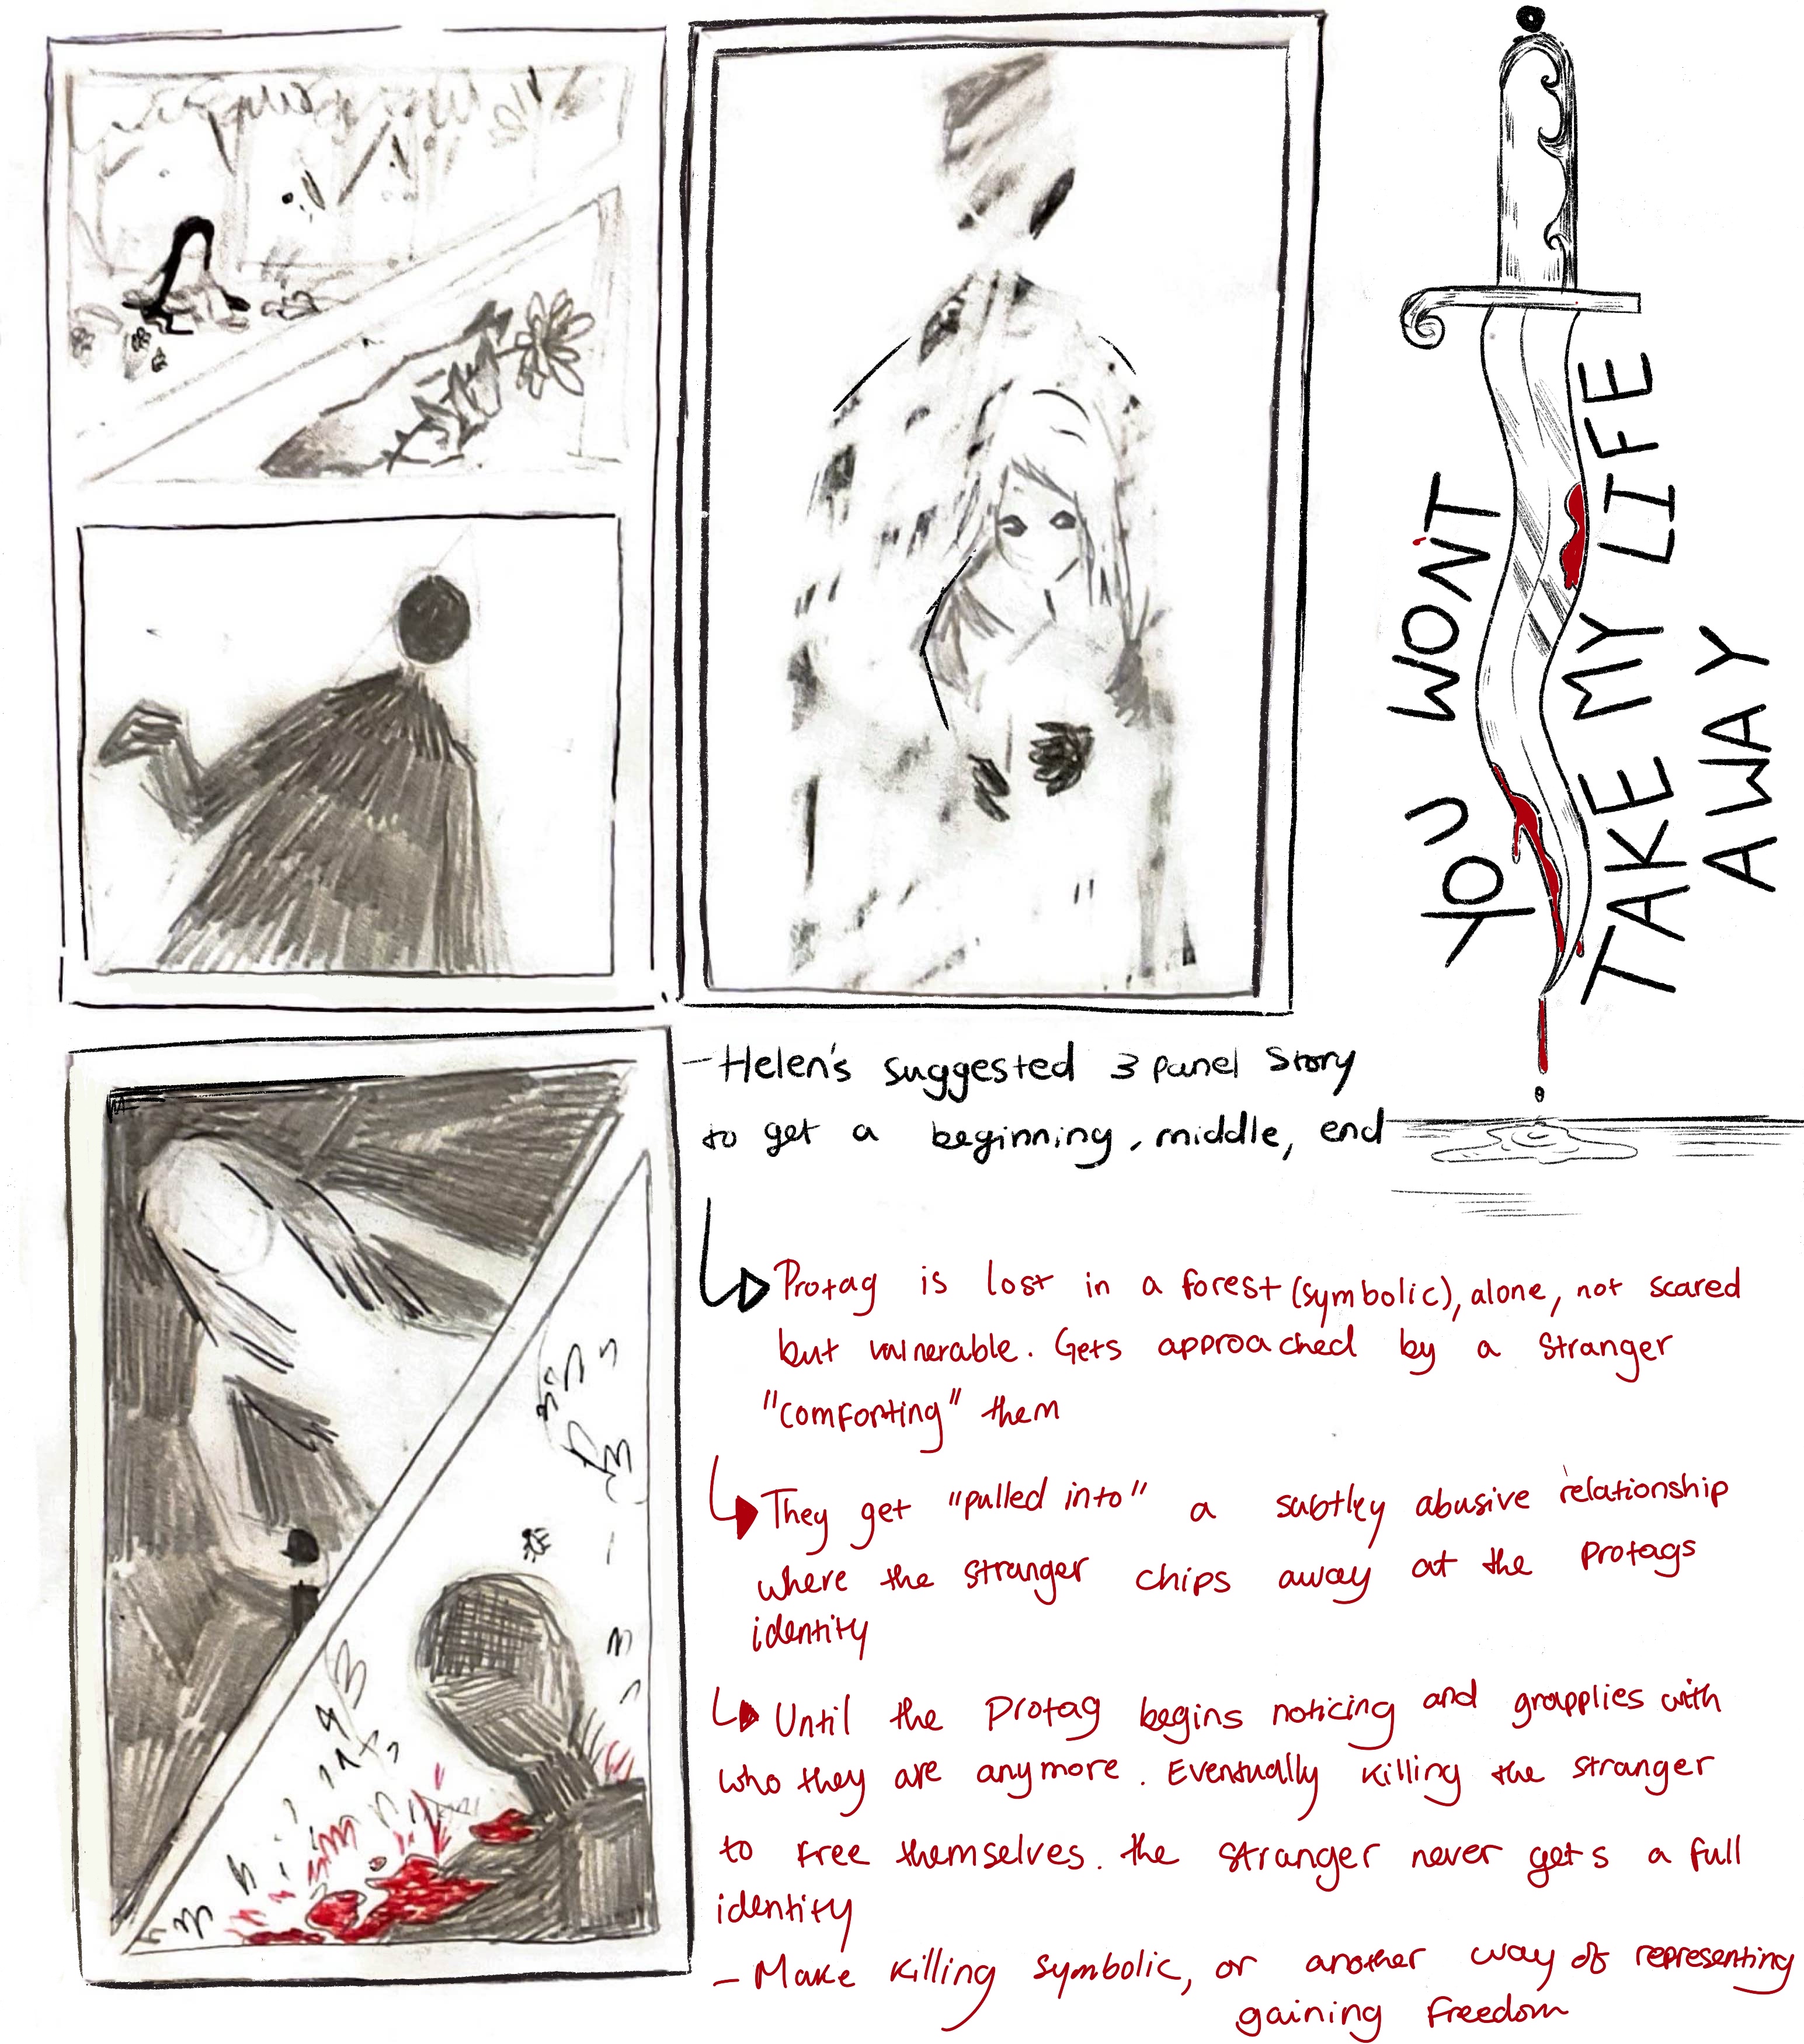 YOU WON'T
TAKE MY LIFE
AWAY
- Helen's suggested 3 panel Story
to get a beginning, middle, end
Protag is lost in a forest (symbolic), alone, not scared
but vulnerable. Gets approached by a stranger
"comforting" them
They get "pulled into" a subtley abusive relationship
where the stranger chips away at the protags
identity
Until the Protag begins noticing and grapplies with
who they are anymore. Eventually killing the stranger
to free themselves. the stranger never gets a full
identity
- Make killing symbolic, or another way of representing
gaining freedom